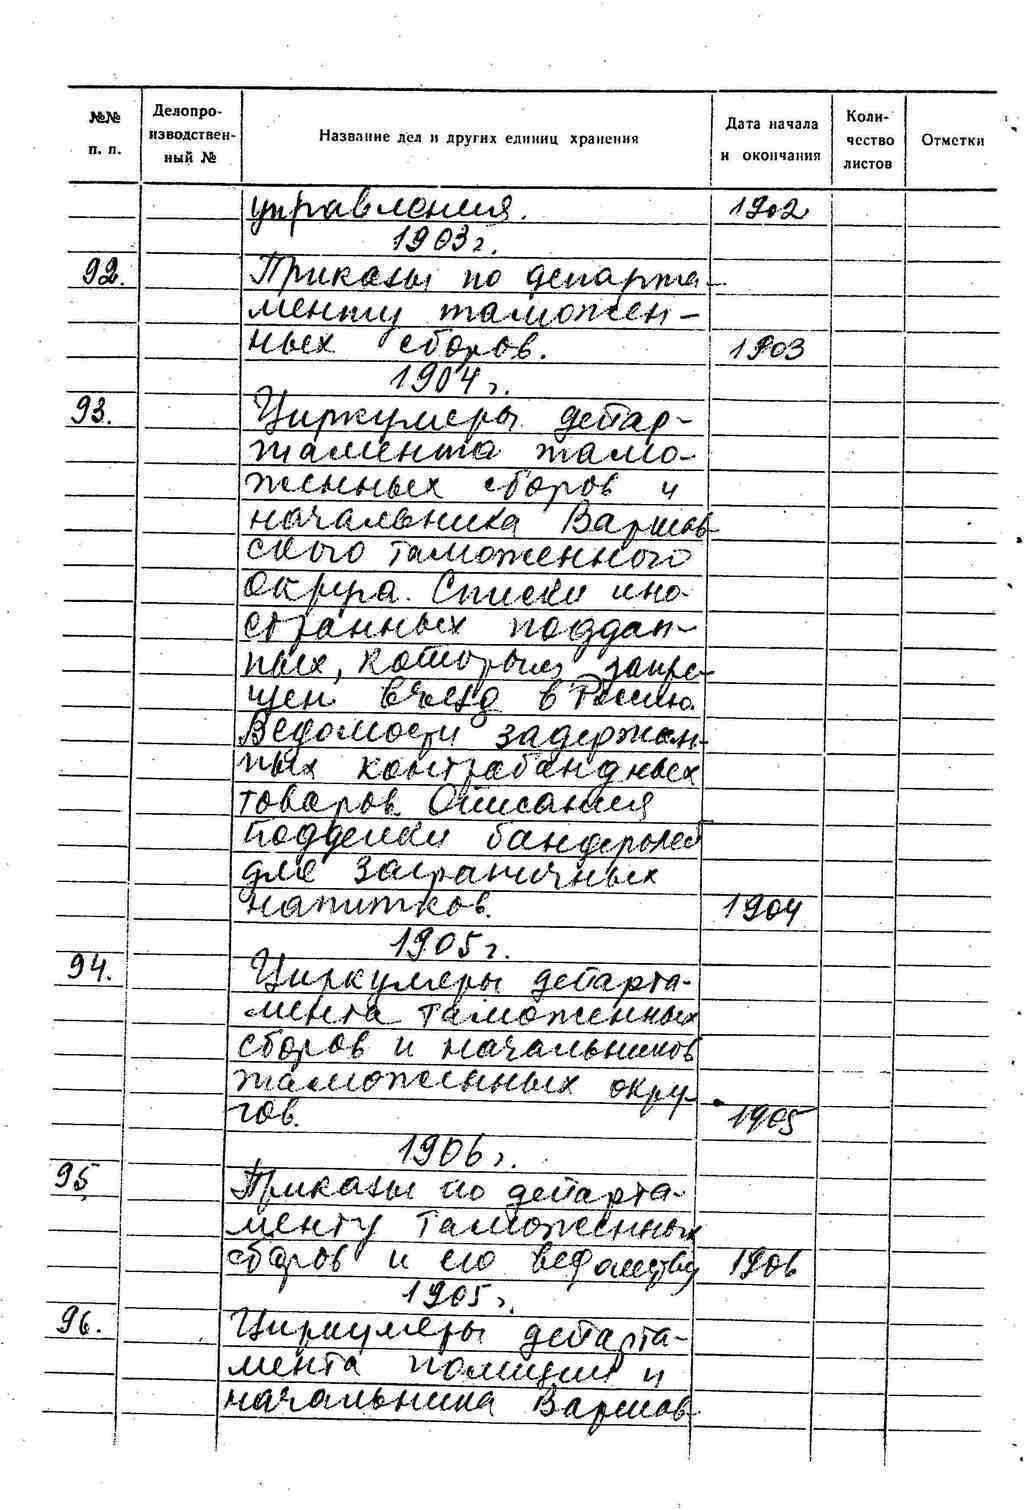 №№ п. п. Делопроизводственный № Название дел и других единиц хранения Дата начала и окончания Количество листов Отметки
управления. 1902
1903 г.
92. Приказы по департа-
менту таможен-
ных сборов. 1903
1904 г.
93. Циркуляры депар-
тамента тамо-
женных сборов и
начальника Варшав-
ского таможенного
округа. Списки ино-
странных поддан-
ных, которым запре-
щен въезд в Россию.
Ведомости задержан-
ных контрабандных
товаров. Описания
подделки бандеролей
для заграничных
напитков. 1904
1905 г.
94. Циркуляры департа-
мента таможенных
сборов и начальников
таможенных окру-
гов. 1905
1906 г.
95. Приказы по департа-
менту таможенных
сборов и его ведомству 1906
1905 г.
96. Циркуляры департа-
мента полиции и
начальника Варшав-